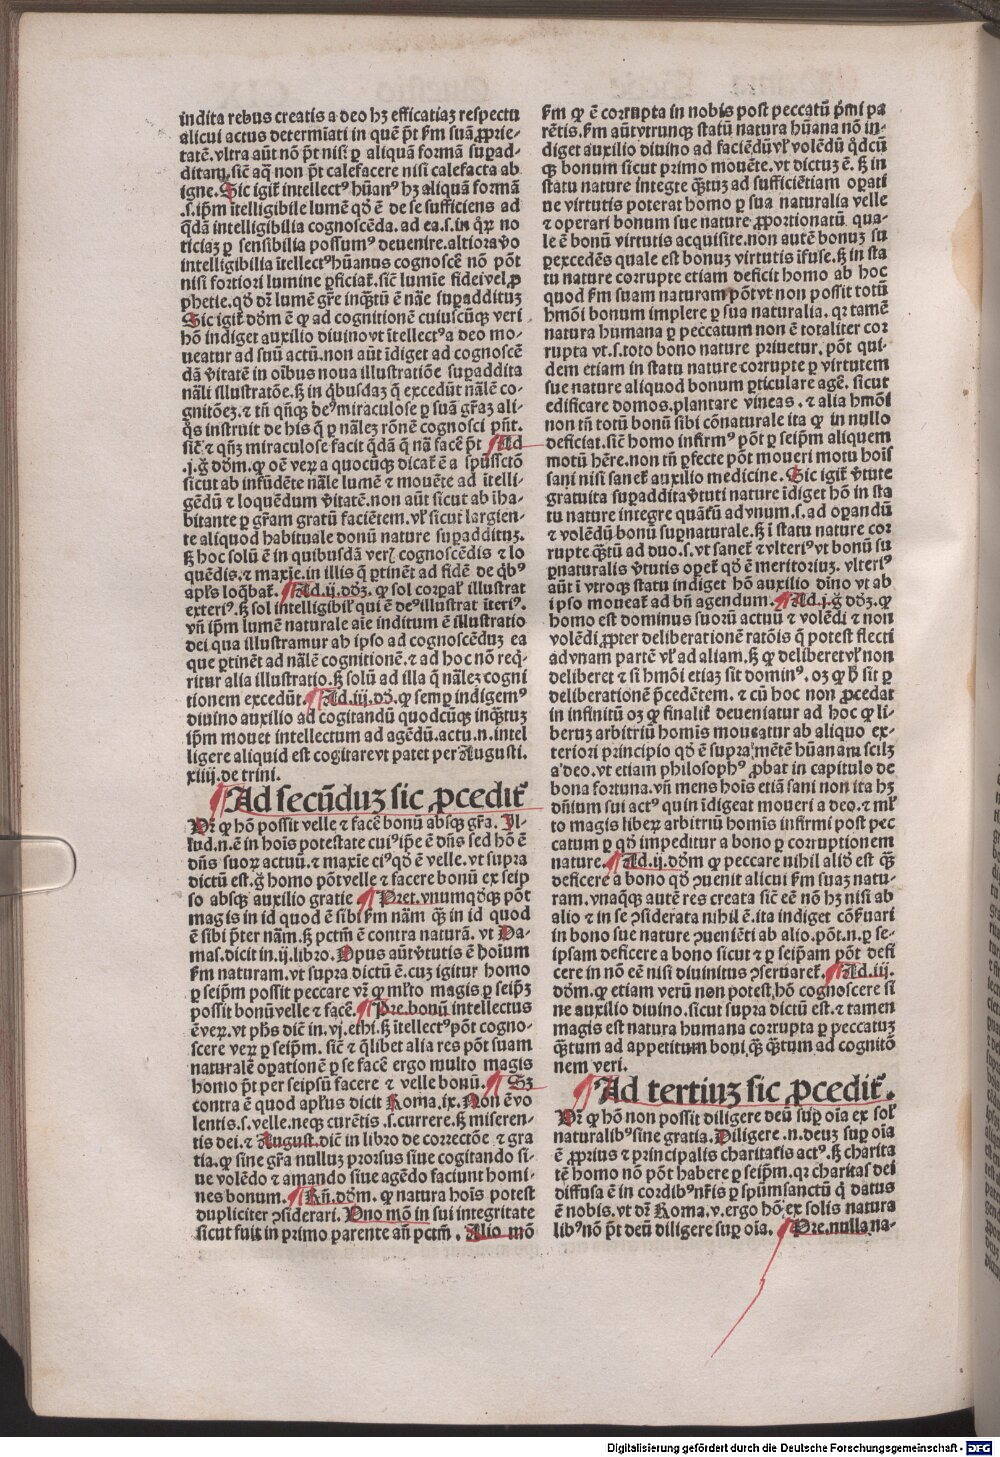 indita rebus creatis a deo hꝫ efficatiaꝫ respectu
alicui actus determīati in quē p̄t ẜm suā ꝓprie-
tatē. vltra aūt nō p̄t nisi ꝑ aliquā formā suꝑad-
ditam. sic̄ aq̄ non p̄t calefacere nisi calefacta ab
igne. Sic igit̄ intellectꝰ hūanꝰ hꝫ aliquā formā
.s. ip̄m ītelligibile lumē qd̄ ē de se sufficiens ad
q̄dā intelligibilia cognoscēda. ad ea .s. in q̄ꝝ no
ticiaꝫ ꝑ sensibilia possumꝰ deuenire. altiora v̄o
intelligibilia ītellectꝰ hūanus cognoscē nō pōt
nisi fortiori lumine ꝑficiat̄. sic̄ lumīe fidei vel ꝓ
phetie. qd̄ dr̄ lumē gr̄e inqꝫtū ē nāe suꝑadditꝫ
Sic igit̄ dōm ē ꝙ ad cognitionē cuiuscūqꝫ veri
hō indiget auxilio diuino vt ītellectꝰ a deo mo-
ueatur ad suū actū. non aūt īdiget ad cognoscē
dā v̄itatē in oībus noua illustratiōe suꝑaddita
nāli illustratōe. sꝫ in q̄busdaꝫ q̄ excedūt nālē co-
gnitōeꝫ. ⁊ tn̄ qn̄qꝫ deꝰ miraculose ꝑ suā gr̄aꝫ ali-
q̄s instruit de his q̄ ꝑ nāleꝫ rōnē cognosci pn̄t.
sic̄ ⁊ qn̄ꝫ miraculose facit q̄dā q̄ nā facē p̄t ¶ Ad
.j. g̊ dōm. ꝙ oē veꝝ a quocūqꝫ dicat̄ ē a spūsctō
sicut ab infūdēte nāle lumē ⁊ mouēte ad ītelli-
gēdū ⁊ loquēdum v̄itatē. non aūt sicut ab īha-
bitante ꝑ gr̄am gratū faciētem. vl̓ sicut largien-
te aliquod habituale donū nature suꝑadditꝫ.
sꝫ hoc solū ē in quibusdā veꝝ cognoscēdis ⁊ lo
quēdis. ⁊ maxīe. in illis q̄ ꝑtinēt ad fidē de q̄bꝰ
apl̓s loq̄bat̄. ¶ Ad .ij. dōꝫ. ꝙ sol corꝑal̓ illustrat
exteriꝰ. sꝫ sol intelligibil̓ qui ē deꝰ illustrat īteriꝰ.
vn̄ ip̄m lumē naturale aīe inditum ē illustratio
dei qua illustramur ab ipso ad cognoscēdꝫ ea
que ꝑtinēt ad nālē cognitionē. ⁊ ad hoc nō req̄-
ritur alia illustratio. sꝫ solū ad illa q̄ nāleꝫ cogni
tionem excedūt. ¶ Ad .iij. dō. ꝙ semꝑ indigemꝰ
diuino auxilio ad cogitandū quodcūqꝫ inqꝫtuꝫ
ip̄m mouet intellectum ad agēdū. actu .n. intel
ligere aliquid est cogitare vt patet per Augusti.
xiiij. de trini.
¶ Ad secūduꝫ sic ꝓcedit̄
Vr̄ ꝙ hō possit velle ⁊ facē bonū absqꝫ gr̄a. Il-
lud .n. ē in hoīs potestate cuiꝰ ip̄e ē dn̄s sed hō ē
dn̄s suoꝝ actuū. ⁊ maxīe eiꝰ qd̄ ē velle. vt supra
dictū est. g̊ homo pōt velle ⁊ facere bonū ex seip
so absqꝫ auxilio gratie ¶ Pret. vnumqd̄qꝫ pōt
magis in id quod ē sibi ẜm nām qꝫ in id quod
ē sibi p̄ter nām. sꝫ pctm̄ ē contra naturā. vt Da-
mas. dicit in .ij. libro. Opus aūt v̄tutis ē hoīum
ẜm naturam. vt supra dictū ē. cuꝫ igitur homo
ꝑ seip̄m possit peccare vr̄ ꝙ ml̓to magis ꝑ seip̄ꝫ
possit bonū velle ⁊ facē. ¶ Pre. bonū intellectus
ē veꝝ. vt ph̄s dic̄ in .vj. ethi. sꝫ ītellectꝰ pōt cogno-
scere veꝝ ꝑ seip̄m. sic̄ ⁊ q̄libet alia res pōt suam
naturalē oꝑationē ꝑ se facē ergo multo magis
homo p̄t per seipsū facere ⁊ velle bonū. ¶ Sꝫ
contra ē quod apl̓us dicit Roma .ix. Non ē vo
lentis .s. velle. neqꝫ curētis .s. currere. sꝫ miseren-
tis dei. ⁊ August. dic̄ in libro de correctōe ⁊ gra
tia. ꝙ sine gr̄a nulluꝫ prorsus siue cogitando si-
ue volēdo ⁊ amando siue agēdo faciunt homi-
nes bonum. ¶ Rn̄. dōm. ꝙ natura hoīs potest
dupliciter ꝯsiderari. Vno mō in sui integritate
sicut fuit in primo parente an̄ pctm̄. Alio mō
ẜm ꝙ ē corrupta in nobis post peccatū p̄mi pa
rētis. ẜm aūt vtrunqꝫ statū natura hūana nō in-
diget auxilio diuino ad faciēdū vl̓ volēdū q̄dcū
qꝫ bonum sicut primo mouēte. vt dictuꝫ ē. sꝫ in
statu nature integre qꝫtuꝫ ad sufficiētiam oꝑati
ue virtutis poterat homo ꝑ sua naturalia velle
⁊ operari bonum sue nature ꝓportionatū qua-
le ē bonū virtutis acquisite. non autē bonuꝫ su
ꝑexcedēs quale est bonuꝫ virtutis īfuse. sꝫ in sta
tu nature corrupte etiam deficit homo ab hoc
quod ẜm suam naturam pōt vt non possit totū
hmōi bonum implere ꝑ sua naturalia. qꝛ tamē
natura humana ꝑ peccatum non ē totaliter cor
rupta vt .s. toto bono nature priuetur. pōt qui-
dem etiam in statu nature corrupte ꝑ virtutem
sue nature aliquod bonum ꝑticulare agē. sicut
edificare domos. plantare vineas. ⁊ alia hmōi
non tn̄ totū bonū sibi cōnaturale ita ꝙ in nullo
deficiat. sic̄ homo infirmꝰ pōt ꝑ seip̄m aliquem
motū hēre. non tn̄ ꝑfecte pōt moueri motu hoīs
sani nisi sanet̄ auxilio medicine. Sic igit̄ v̄tute
gratuita suꝑaddita v̄tuti nature īdiget hō in sta
tu nature integre quātū ad vnum .s. ad oꝑandū
⁊ volēdū bonū suꝑnaturale. sꝫ ī statu nature cor
rupte qꝫtū ad duo .s. vt sanet̄ ⁊ vlteriꝰ vt bonū su
ꝑnaturalis v̄tutis opet̄ qd̄ ē meritoriuꝫ. vlteriꝰ
aūt ī vtroqꝫ statu indiget hō auxilio dīno vt ab
ipso moueat̄ ad bn̄ agendum. ¶ Ad .j. g̊ dōꝫ. ꝙ
homo est dominus suorū actuū ⁊ volēdi ⁊ non
volēdi ꝓpter deliberationē ratōis q̄ potest flecti
ad vnam partē vl̓ ad aliam. sꝫ ꝙ deliberet vl̓ non
deliberet ⁊ si hmōi etiaꝫ sit dominꝰ. oꝫ ꝙ h̓ sit ꝑ
deliberationē p̄cedētem. ⁊ cū hoc non ꝓcedat
in infinitū oꝫ ꝙ finalit̄ deueniatur ad hoc ꝙ li-
beruꝫ arbitriū homīs moueatur ab aliquo ex-
teriori principio qd̄ ē supra mētē hūanam scilꝫ
a deo. vt etiam philosophꝰ ꝓbat in capitulo de
bona fortuna. vn̄ mens hoīs etiā sani non ita hꝫ
dn̄ium sui actꝰ quin īdigeat moueri a deo. ⁊ ml̓
to magis libeꝝ arbitriū homīs infirmi post pec
catum ꝑ qd̄ impeditur a bono ꝑ corruptionem
nature. ¶ Ad .ij. dōm ꝙ peccare nihil aliō est qꝫ
deficere a bono qd̄ ꝯuenit alicui ẜm suaꝫ natu-
ram. vnaq̄qꝫ autē res creata sic̄ eē nō hꝫ nisi ab
alio ⁊ in se ꝯsiderata nihil ē. ita indiget cōẜuari
in bono sue nature ꝯueniēti ab alio. pōt .n. ꝑ se-
ipsam deficere a bono sicut ⁊ ꝑ seip̄am pōt defi
cere in nō eē nisi diuinitus ꝯseruaret̄. ¶ Ad .iij.
dōm. ꝙ etiam verū non potest hō cognoscere si
ne auxilio diuino. sicut supra dictū est. ⁊ tamen
magis est natura humana corrupta ꝑ peccatuꝫ
qꝫtum ad appetitum boni qꝫ qꝫtum ad cognitō
nem veri.
¶ Ad tertiuꝫ sic ꝓcedit̄.
Vr̄ ꝙ hō non possit diligere deū suꝑ oīa ex sol̓
naturalibꝰ sine gratia. Diligere .n. deuꝫ suꝑ oīa
ē ꝓprius ⁊ principalis charitatis actꝰ. sꝫ charita
tē homo nō pōt habere ꝑ seip̄m. qꝛ charitas dei
diffusa ē in cordibꝰ nr̄is ꝑ sp̄umsanctū q̄ datus
ē nobis. vt dr̄ Roma. v. ergo hō ex solis natura
libꝰ nō p̄t deū diligere suꝑ oīa. ¶ Pre. nulla na-
Digitalisierung gefördert durch die Deutsche Forschungsgemeinschaft - DFG